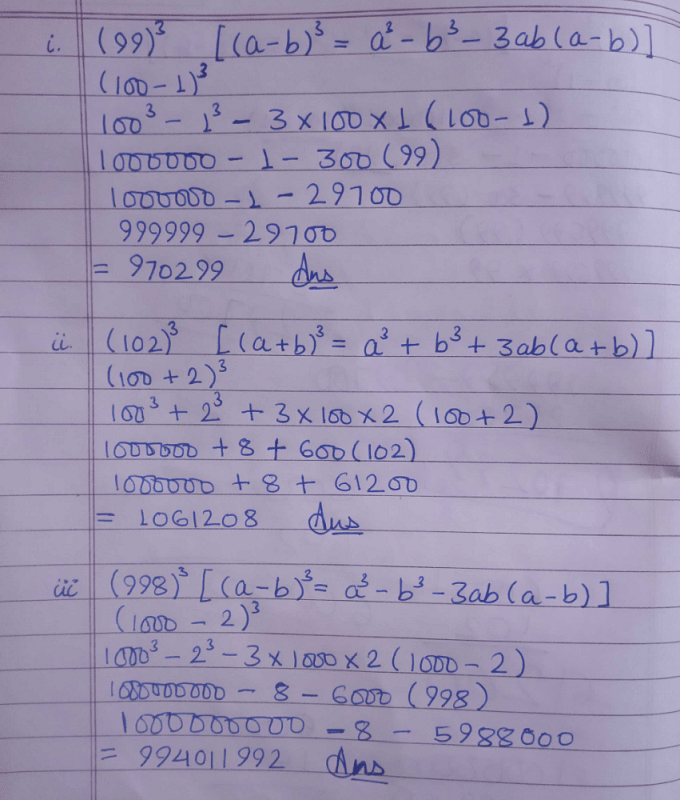 i. (99)³ [(a-b)³ = a³ - b³ - 3ab(a-b)]
(100 - 1)³
100³ - 1³ - 3 × 100 × 1 (100 - 1)
1000000 - 1 - 300 (99)
1000000 - 1 - 29700
999999 - 29700
= 970299 Ans
ii. (102)³ [(a+b)³ = a³ + b³ + 3ab(a+b)]
(100 + 2)³
100³ + 2³ + 3 × 100 × 2 (100 + 2)
1000000 + 8 + 600 (102)
1000000 + 8 + 61200
= 1061208 Ans
iii (998)³ [(a-b)³ = a³ - b³ - 3ab(a-b)]
(1000 - 2)³
1000³ - 2³ - 3 × 1000 × 2 (1000 - 2)
1000000000 - 8 - 6000 (998)
1000000000 - 8 - 5988000
= 994011992 Ans